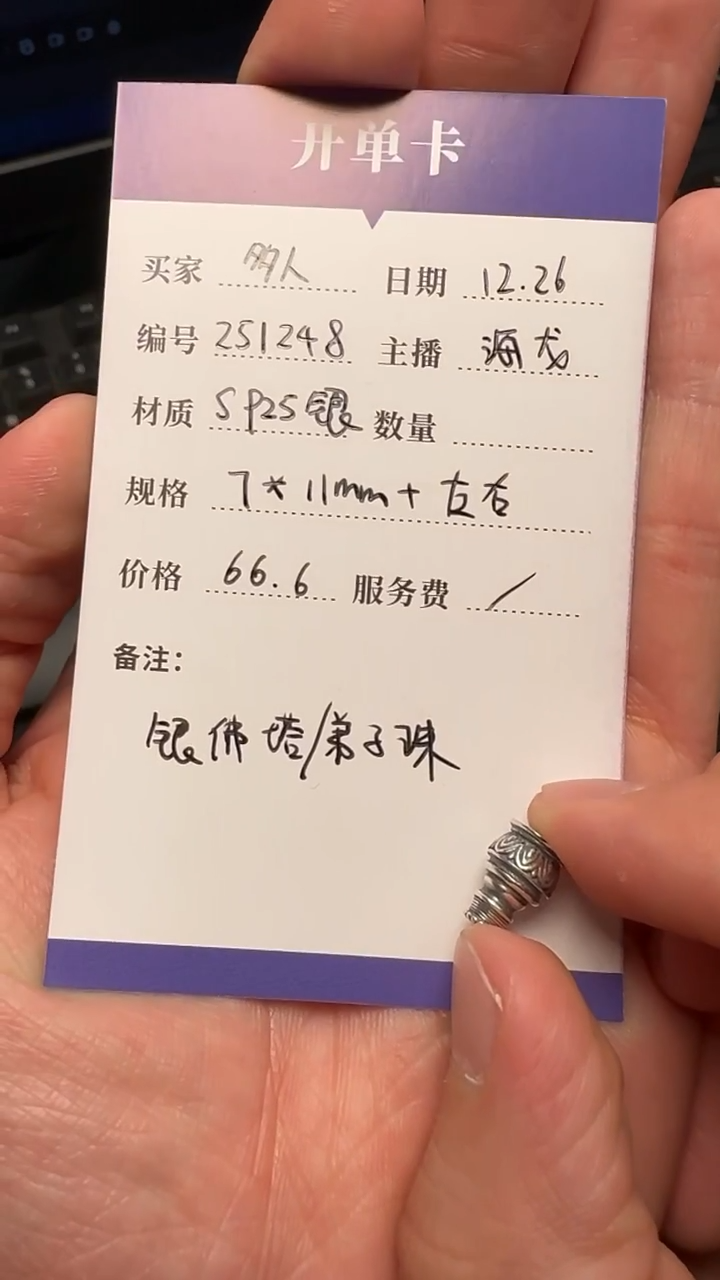 开单卡
买家 多人 日期 12.26
编号 251248 主播 海龙
材质 S925银 数量
规格 7*11mm+左右
价格 66.6 服务费 /
备注:
银佛塔/弟子珠